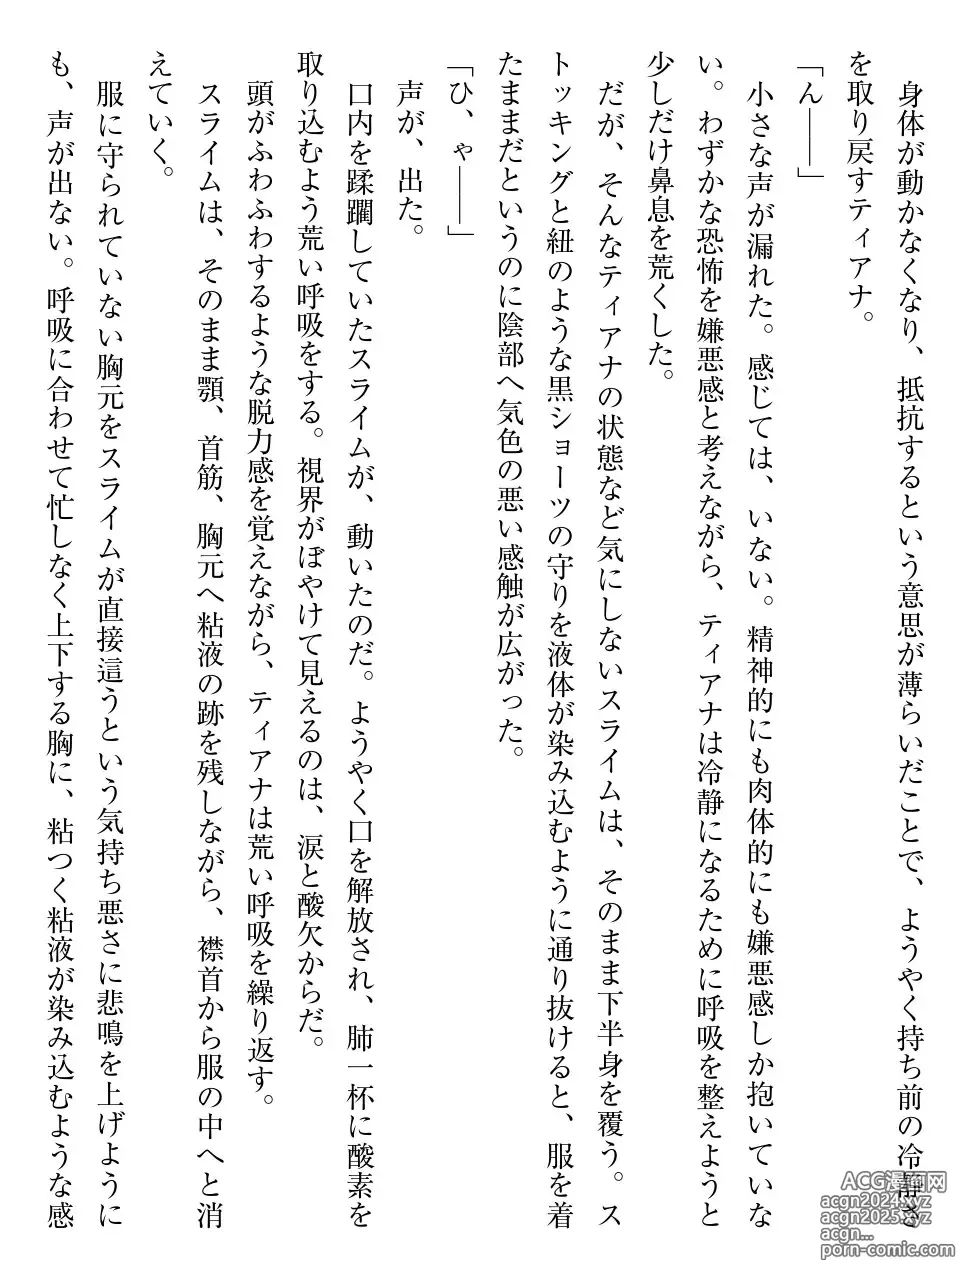 身体が動かなくなり、抵抗するという意思が薄らいだことで、ようやく持ち前の冷静さ
を取り戻すティアナ。
「ん――」
小さな声が漏れた。感じては、いない。精神的にも肉体的にも嫌悪感しか抱いていな
い。わずかな恐怖を嫌悪感と考えながら、ティアナは冷静になるために呼吸を整えようと
少しだけ鼻息を荒くした。
だが、そんなティアナの状態など気にしないスライムは、そのまま下半身を覆う。ス
トッキングと紐のような黒ショーツの守りを液体が染み込むように通り抜けると、服を着
たままだというのに陰部へ気色の悪い感触が広がった。
「ひ、ゃ――」
声が、出た。
口内を蹂躙していたスライムが、動いたのだ。ようやく口を解放され、肺一杯に酸素を
取り込むよう荒い呼吸をする。視界がぼやけて見えるのは、涙と酸欠からだ。
頭がふわふわするような脱力感を覚えながら、ティアナは荒い呼吸を繰り返す。
スライムは、そのまま顎、首筋、胸元へ粘液の跡を残しながら、襟首から服の中へと消
えていく。
服に守られていない胸元をスライムが直接這うという気持ち悪さに悲鳴を上げように
も、声が出ない。呼吸に合わせて忙しなく上下する胸に、粘つく粘液が染み込むような感
ACG漫画网
acgn2024.xyz
acgn2025.xyz
acgn...
porn-comic.com